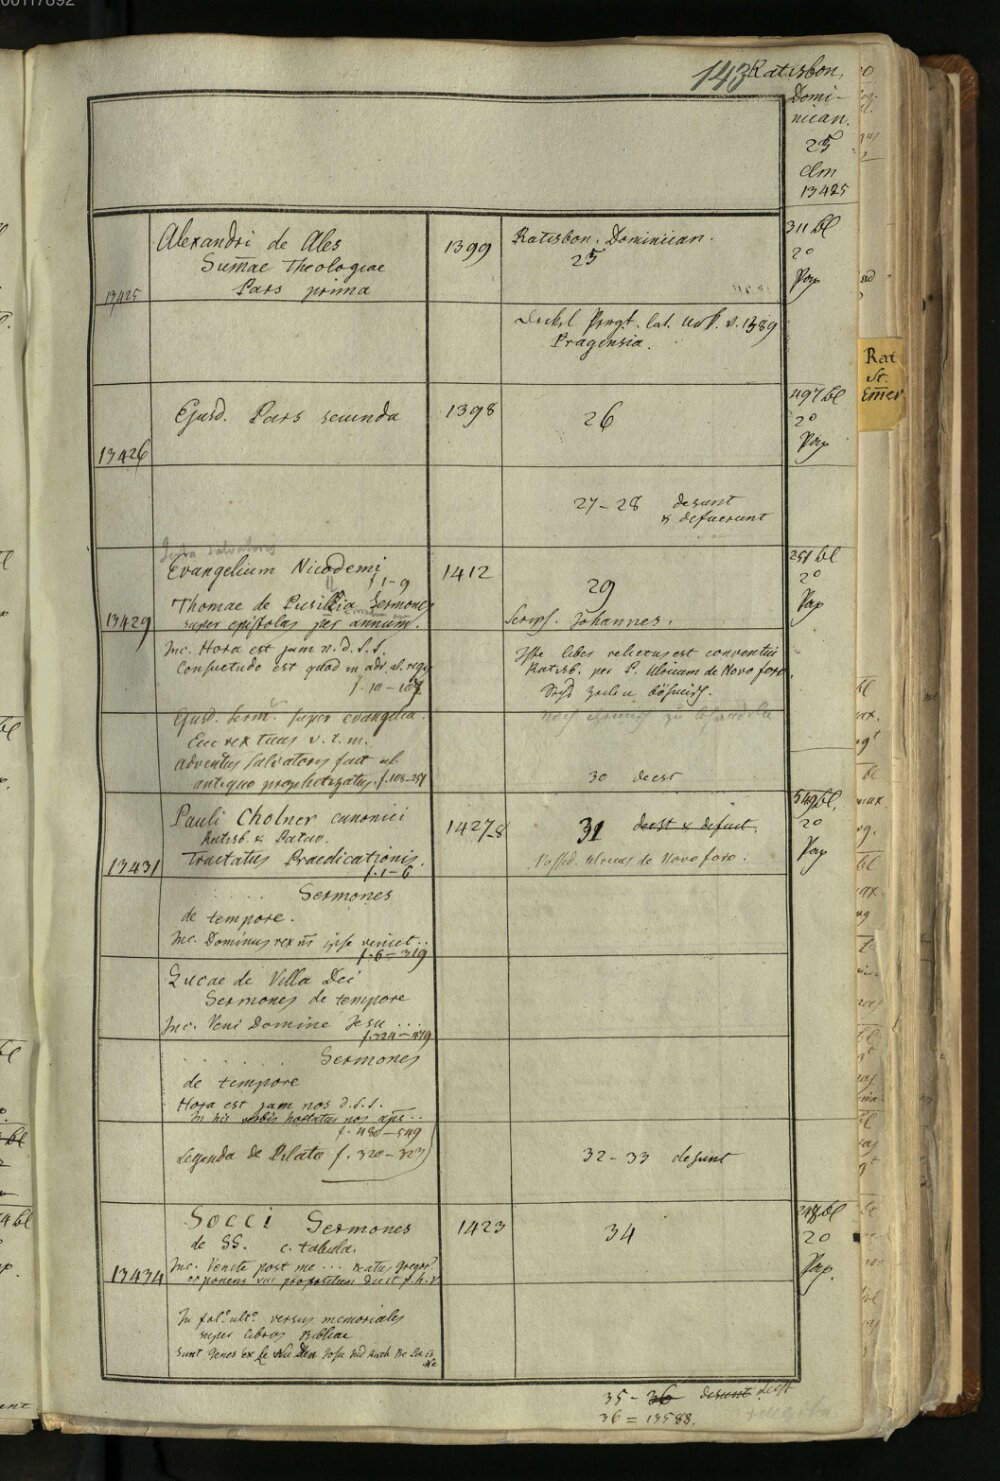 00117892
143 Ratisbon.
Domi-
nican.
25
clm
13425
Alexandri de Ales
Sum̄ae Theologiae
Pars prima
13425
1399
Ratisbon. Dominican.
25
311 bl
2°
Pap
Deckel Pergt. lat. Urk. v. 1389
Pragensia.
Ejusd. Pars secunda
13426
1398
26
497 bl
2°
Pap
27-28 desunt
& defuerunt
Rat
St.
Em̄er
Evangelium Nicodemi
f 1-9
Thomae de Sermones
super epistolas per annum.
13429
1412
29
Scrips. Johannes.
251 bl
2°
Pap
Inc. Hora est jam n. d. s. s.
Consuetudo est quod in adv. al. regis
f. 10-107
Iste liber relictus est conventui
Ratisb. per P. Ulricum de Novo foro.
Ejusd. Serm. super evangelia.
Ecce rex tuus v. t. m.
Adventus salvatoris fuit ab
antiquo prophetizatus. f. 108-251
30 deest
Pauli Cholner canonici
Ratisb. & Patav.
Tractatus Praedicationis.
f. 1-6
13431
1427-8
31 deest & defuit.
Possed. Ulricus de Novo foro.
549 bl.
2°
Pap
..... Sermones
de tempore.
Inc. Dominus rex nr̄ ipse veniet..
f. 6-319
Lucae de Villa Dei
Sermones de tempore
Inc. Veni Domine Jesu ...
f. 324-479
...... Sermones
de tempore
Hora est jam nos d.s.s.
In his verbis hortatur nos aps̄...
f. 480-549
Legenda de Pilato f. 320-323
32-33 desunt
Socci Sermones
de SS. c. tabula.
Inc. Venite post me ... Beatus Gregor.
exponens
13434
1423
34
bl
20
Pap.
In fol.° ult.° versus memoriales
super libros Bibliae
Sunt Genes Ex Le Nu Deu Josu Jud Ruth
35-36 desunt deest
36 = 13588.